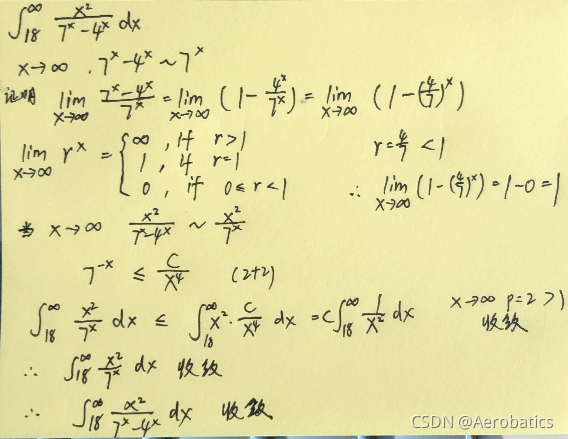 ∫₁₈^∞ x²/(7ˣ-4ˣ) dx
x→∞ . 7ˣ-4ˣ ~ 7ˣ
证明 lim_{x→∞} (7ˣ-4ˣ)/7ˣ = lim_{x→∞} (1 - 4ˣ/7ˣ) = lim_{x→∞} (1-(4/7)ˣ)
lim_{x→∞} rˣ = { ∞ , if r>1
1 , if r=1
0 , if 0≤r<1
r=4/7 <1
∴ lim_{x→∞} (1-(4/7)ˣ)=1-0=1
当 x→∞ x²/(7ˣ-4ˣ) ~ x²/7ˣ
7⁻ˣ ≤ C/x⁴ (2+2)
∫₁₈^∞ x²/7ˣ dx ≤ ∫₁₈^∞ x²·C/x⁴ dx = C∫₁₈^∞ 1/x² dx x→∞ p=2 >1
收敛
∴ ∫₁₈^∞ x²/7ˣ dx 收敛
∴ ∫₁₈^∞ x²/(7ˣ-4ˣ) dx 收敛
CSDN @Aerobatics